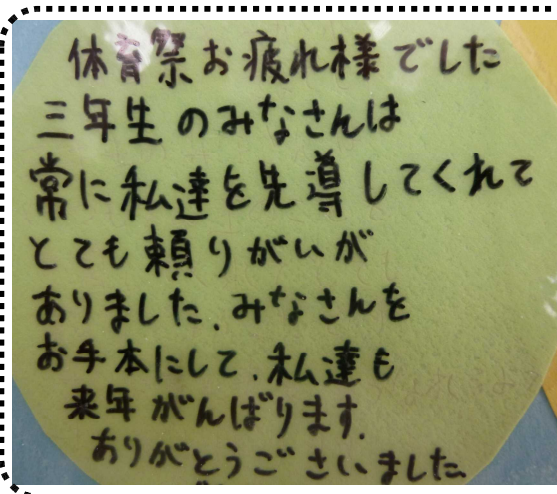 体育祭お疲れ様でした
三年生のみなさんは
常に私達を先導してくれて
とても頼りがいが
ありました。みなさんを
お手本にして、私達も
来年がんばります。
ありがとうございました